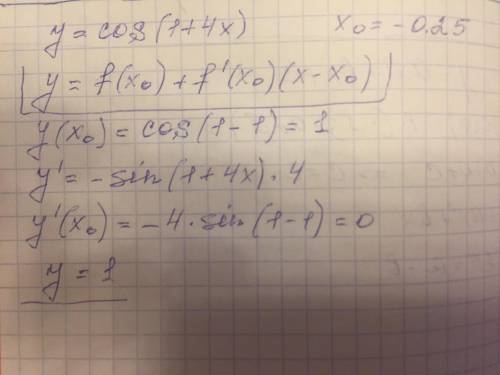 y = cos(1+4x) x₀ = -0.25
y = f(x₀) + f'(x₀)(x-x₀)
y(x₀) = cos(1-1) = 1
y' = -sin(1+4x)·4
y'(x₀) = -4·sin(1-1) = 0
y = 1